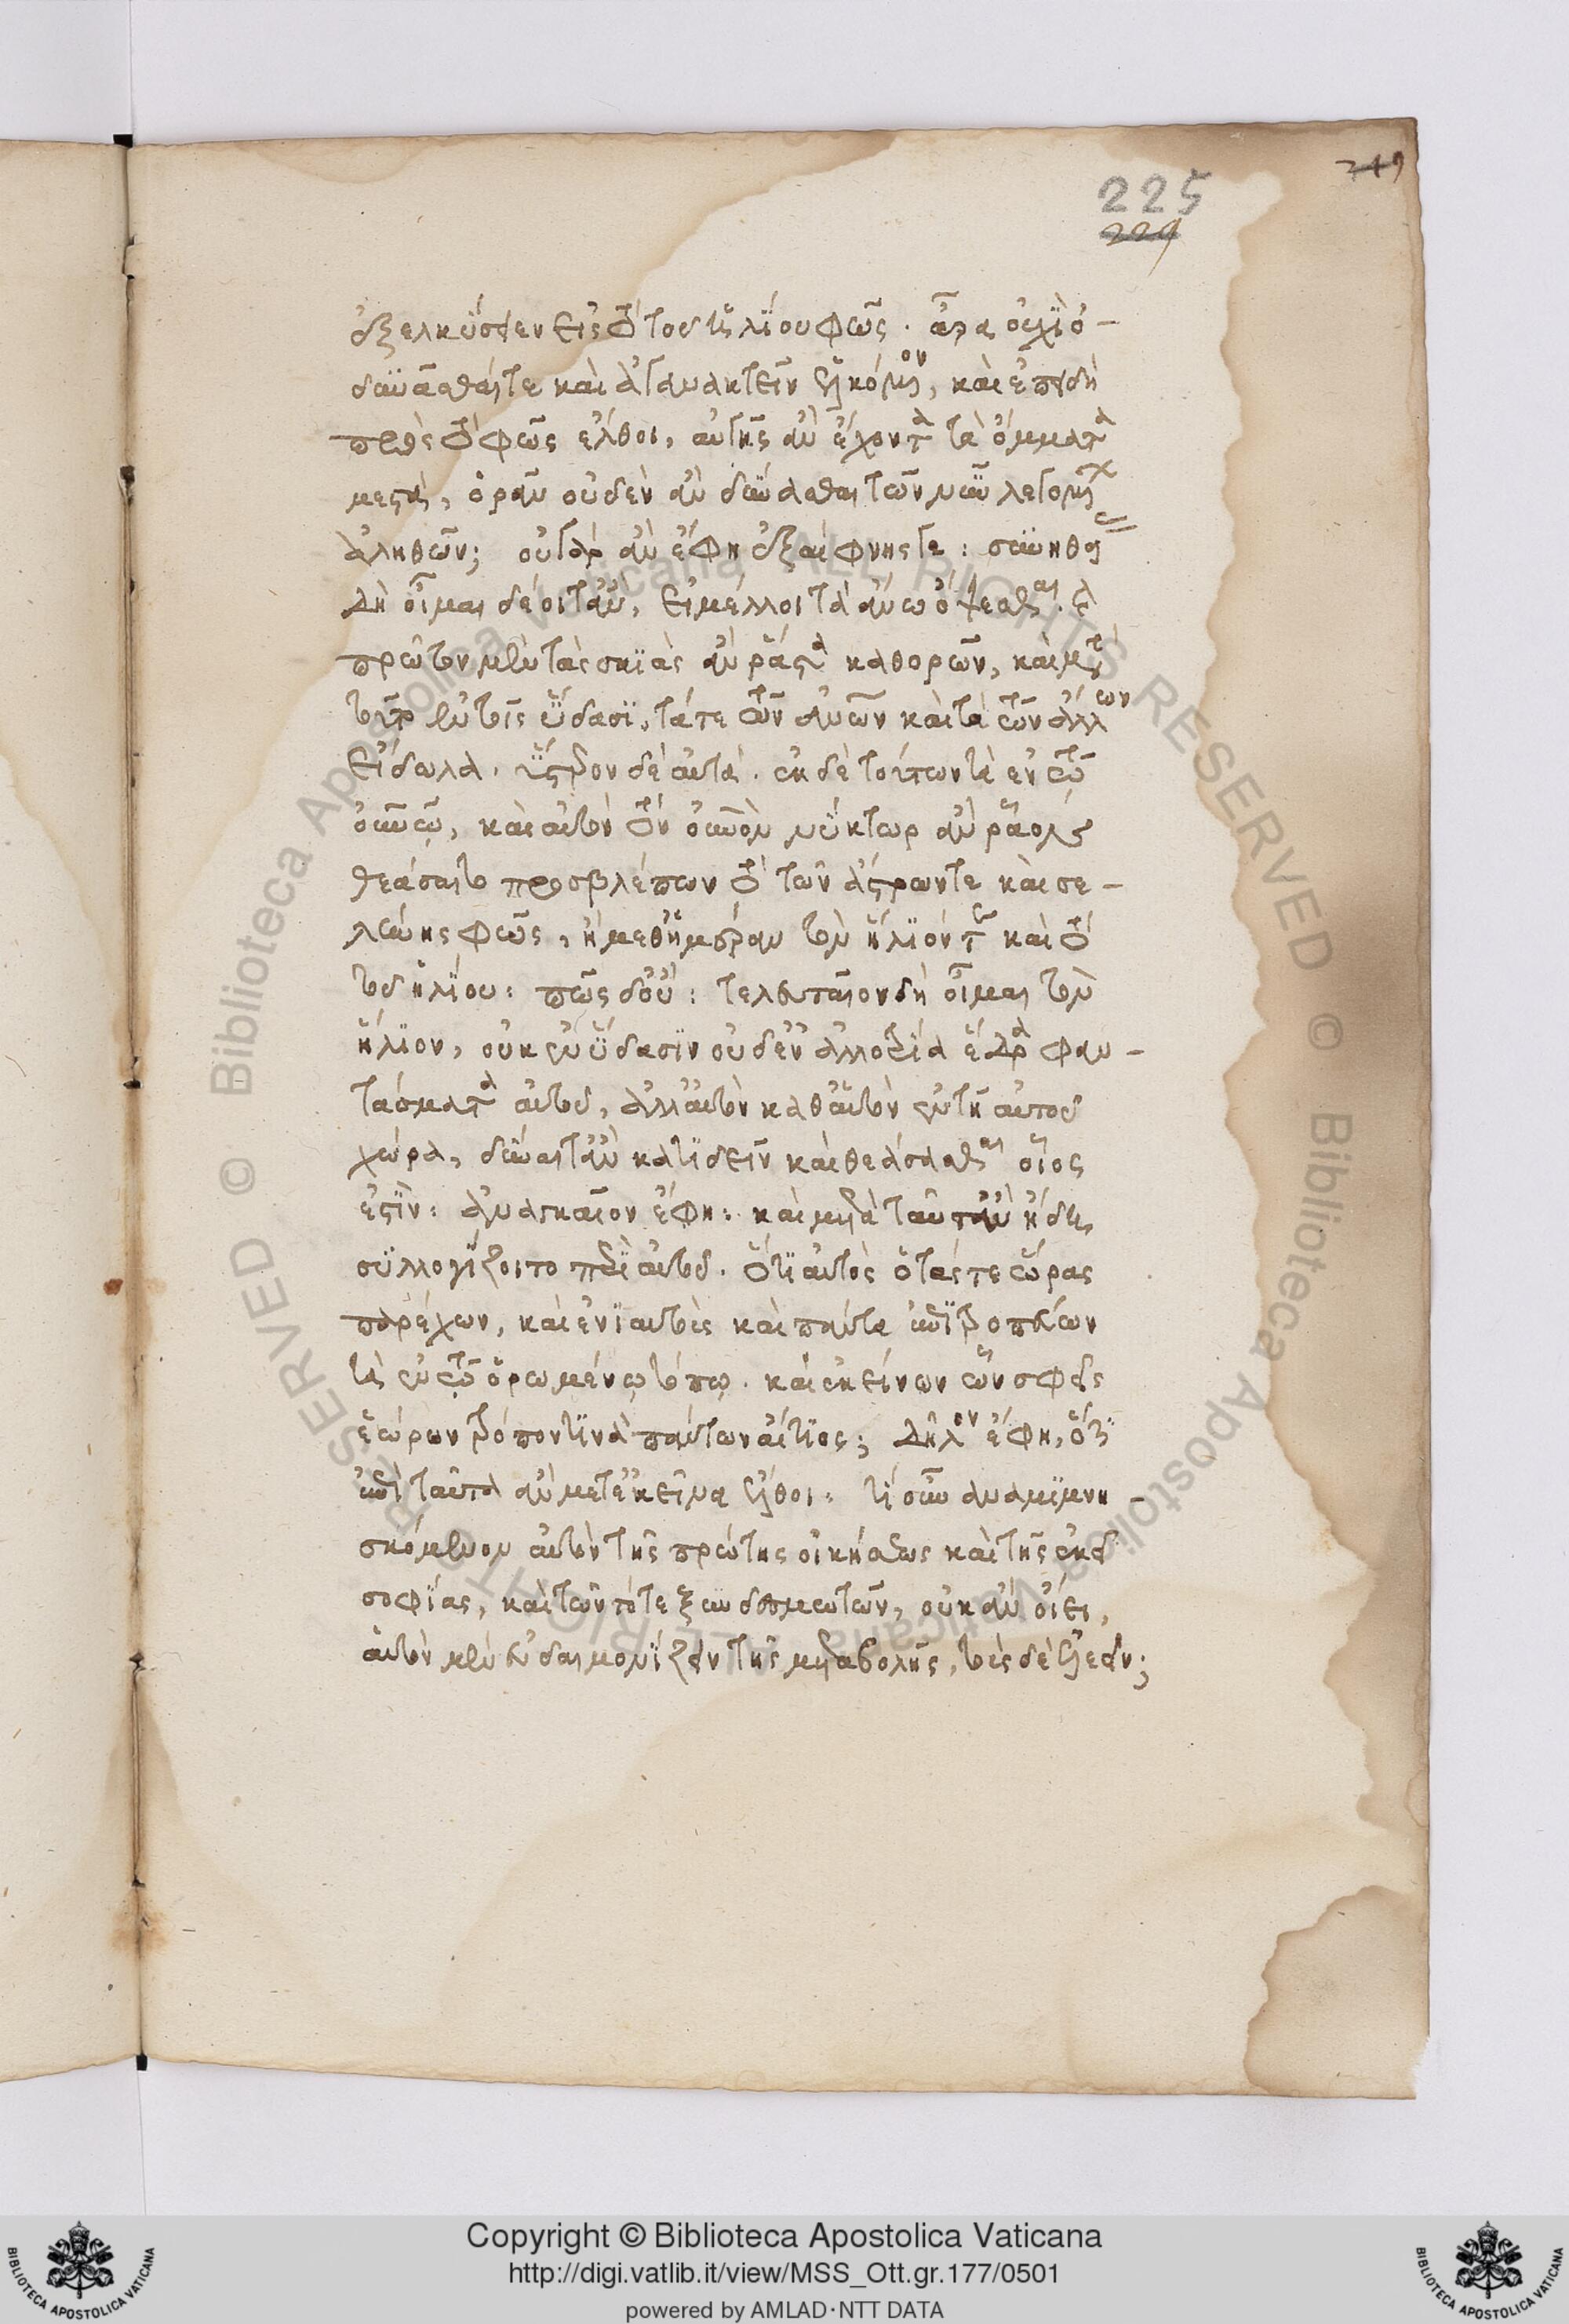 225
224
219
ἐξελκύσειεν εἰς τὸ τοῦ ἡλίου φῶς. ἆρα οὐχὶ ὀ-
δυνᾶσθαί τε καὶ ἀγανακτεῖν ἑλκόμενον, καὶ ἐπειδὴ
πρὸς τὸ φῶς ἔλθοι, αὐγῆς ἂν ἔχοντα τὰ ὄμματα
μεστὰ, ὁρᾶν οὐδὲν ἂν δύνασθαι τῶν νῦν λεγομένων
ἀληθῶν; οὐ γὰρ ἂν ἔφη ἐξαίφνης γε: συνηθείας
δὴ οἶμαι δέοιτ' ἂν, εἰ μέλλοι τὰ ἄνω ὄψεσθαι. καὶ
πρῶτον μὲν τὰς σκιὰς ἂν ῥᾷστα καθορῶν, καὶ μετὰ
τοῦτο ἐν τοῖς ὕδασι, τά τε τῶν ἀνθρώπων καὶ τὰ τῶν ἄλλων
εἴδωλα. ὕστερον δὲ αὐτά. ἐκ δὲ τούτων τὰ ἐν τῷ
οὐρανῷ, καὶ αὐτὸν τὸν οὐρανὸν νύκτωρ ἂν ῥᾷον
θεάσαιτο προσβλέπων τὸ τῶν ἄστρων τε καὶ σε-
λήνης φῶς, ἢ μεθ' ἡμέραν τὸν ἥλιόν τε καὶ τὸ
τοῦ ἡλίου: πῶς δ' οὔ: τελευταῖον δὴ οἶμαι τὸν
ἥλιον, οὐκ ἐν ὕδασιν οὐδ' ἐν ἀλλοτρίᾳ ἕδρᾳ φαν-
τάσματα αὐτοῦ, ἀλλ' αὐτὸν καθ' αὑτὸν ἐν τῇ αὑτοῦ
χώρᾳ, δύναιτ' ἂν κατιδεῖν καὶ θεάσασθαι οἷός
ἐστιν: ἀναγκαῖον ἔφη: καὶ μετὰ ταῦτ' ἂν ἤδη
συλλογίζοιτο περὶ αὐτοῦ. ὅτι αὐτὸς ὁ τάς τε ὥρας
παρέχων, καὶ ἐνιαυτοὺς καὶ πάντα ἐπιτροπεύων
τὰ ἐν τῷ ὁρωμένῳ τόπῳ. καὶ ἐκείνων ὧν σφεῖς
ἑώρων τρόπον τινὰ πάντων αἴτιος; δῆλον ἔφη, ὅτι
ἐπὶ ταῦτα ἂν μετ' ἐκεῖνα ἔλθοι: τί οὖν ἀναμιμνη-
σκόμενον αὐτὸν τῆς πρώτης οἰκήσεως καὶ τῆς ἐκεῖ
σοφίας, καὶ τῶν τότε ξυνδεσμωτῶν, οὐκ ἂν οἴει,
αὐτὸν μὲν εὐδαιμονίζειν τῆς μεταβολῆς, τοὺς δὲ ἐλεεῖν;
Copyright © Biblioteca Apostolica Vaticana
http://digi.vatlib.it/view/MSS_Ott.gr.177/0501
powered by AMLAD·NTT DATA
BIBLIOTECA APOSTOLICA VATICANA
BIBLIOTECA APOSTOLICA VATICANA
© Biblioteca Apostolica Vaticana ALL RIGHTS RESERVED © Biblioteca Apostolica Vaticana ALL RIGHTS RESERVED